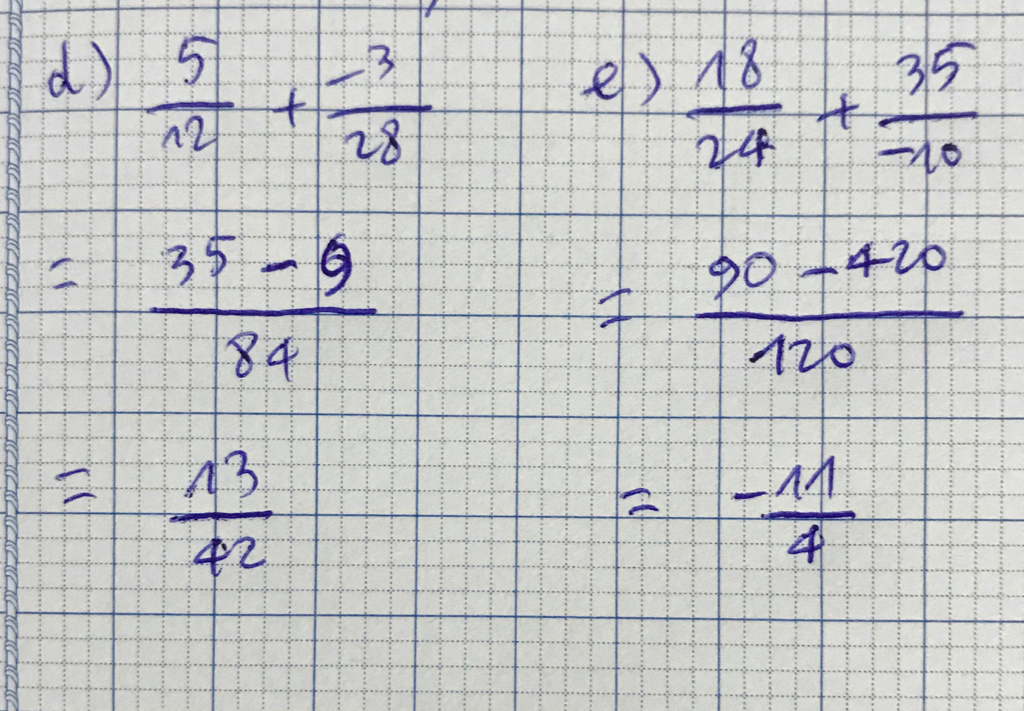 d) 5/12 + -3/28
= 35 - 9 / 84
= 13/42
e) 18/24 + 35/-10
= 90 - 420 / 120
= -11/4